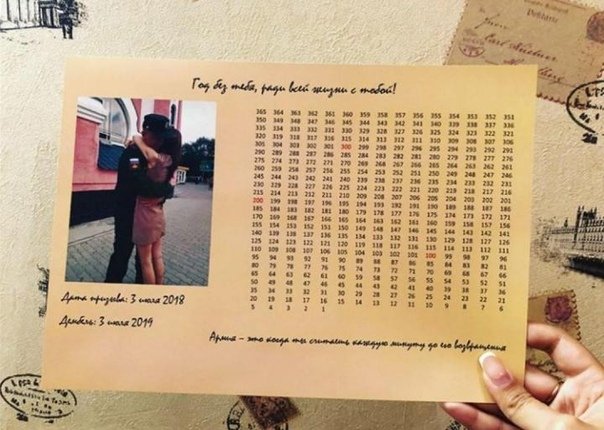 Год без тебя, ради всей жизни с тобой!
365 364 363 362 361 360 359 358 357 356 355 354 353 352 351
350 349 348 347 346 345 344 343 342 341 340 339 338 337 336
335 334 333 332 331 330 329 328 327 326 325 324 323 322 321
320 319 318 317 316 315 314 313 312 311 310 309 308 307 306
305 304 303 302 301 300 299 298 297 296 295 294 293 292 291
290 289 288 287 286 285 284 283 282 281 280 279 278 277 276
275 274 273 272 271 270 269 268 267 266 265 264 263 262 261
260 259 258 257 256 255 254 253 252 251 250 249 248 247 246
245 244 243 242 241 240 239 238 237 236 235 234 233 232 231
230 229 228 227 226 225 224 223 222 221 220 219 218 217 216
215 214 213 212 211 210 209 208 207 206 205 204 203 202 201
200 199 198 197 196 195 194 193 192 191 190 189 188 187 186
185 184 183 182 181 180 179 178 177 176 175 174 173 172 171
170 169 168 167 166 165 164 163 162 161 160 159 158 157 156
155 154 153 152 151 150 149 148 147 146 145 144 143 142 141
140 139 138 137 136 135 134 133 132 131 130 129 128 127 126
125 124 123 122 121 120 119 118 117 116 115 114 113 112 111
110 109 108 107 106 105 104 103 102 101 100 99 98 97 96
95 94 93 92 91 90 89 88 87 86 85 84 83 82 81
80 79 78 77 76 75 74 73 72 71 70 69 68 67 66
65 64 63 62 61 60 59 58 57 56 55 54 53 52 51
50 49 48 47 46 45 44 43 42 41 40 39 38 37 36
35 34 33 32 31 30 29 28 27 26 25 24 23 22 21
20 19 18 17 16 15 14 13 12 11 10 9 8 7 6
5 4 3 2 1
Дата призыва: 3 июля 2018
Дембель: 3 июля 2019
Армия – это когда ты считаешь каждую минуту до его возвращения